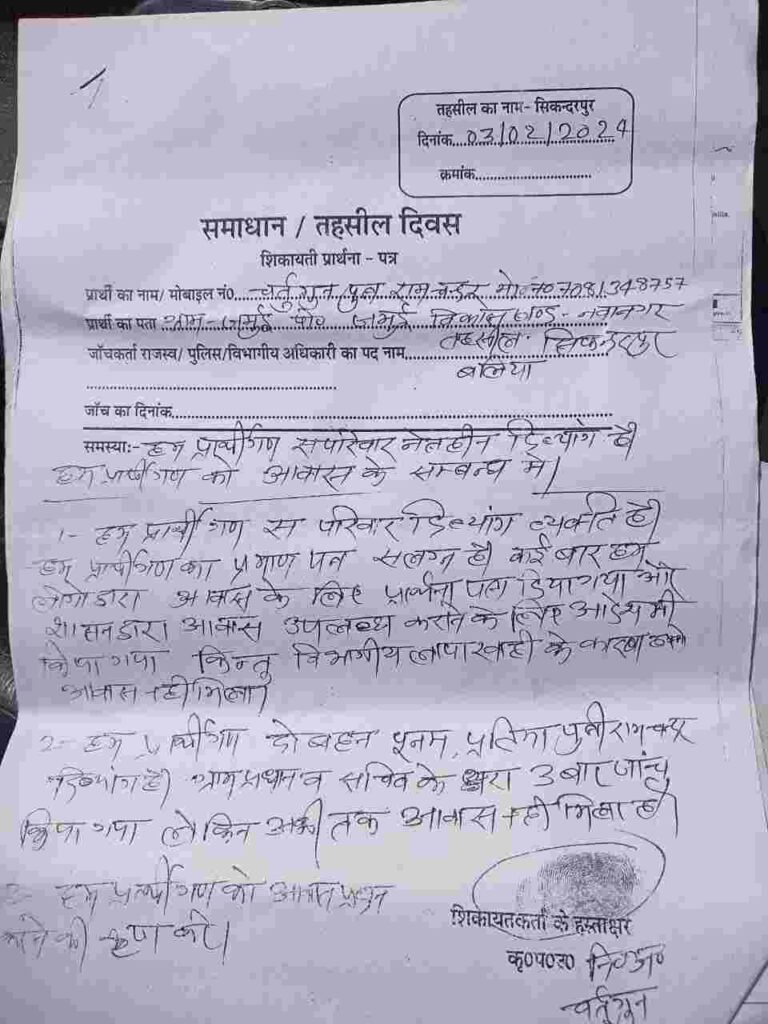 1
तहसील का नाम- सिकन्दरपुर
दिनांक....03/02/2024
क्रमांक..............................
समाधान / तहसील दिवस
शिकायती प्रार्थना - पत्र
प्रार्थी का नाम/ मोबाइल नं0... चर्तुगुन पुत्र रामचन्दर मो० न० 7081348757
प्रार्थी का पता ग्राम- जमुई पो० जमुई विकास खण्ड- नवानगर
जाँचकर्ता राजस्व/ पुलिस/विभागीय अधिकारी का पद नाम तहसील- सिकन्दरपुर
बलिया
जाँच का दिनांक
समस्या:- हम प्रार्थीगण सपरिवार नेत्रहीन दिव्यांग है।
हम प्रार्थीगण को आवास के सम्बन्ध मे।
1- हम प्रार्थीगण स परिवार दिव्यांग व्यक्ति है।
हम प्रार्थीगण का प्रमाण पत्र सलग्न है। कई बार हम
लोगो द्वारा आवास के लिए प्रार्थना पत्र दिया गया और
शासन द्वारा आवास उपलब्ध कराने के लिए आदेश भी
किया गया किन्तु विभागीय लापरवाही के कारण
आवास नही मिला।
2- हम प्रार्थीगण दो बहन पूनम, प्रतिमा पुत्री रामचन्दर
दिव्यांग है। ग्राम प्रधान व सचिव के द्वारा 3 बार जांच
किया गया लेकिन अभी तक आवास नही मिला है।
3- हम प्रार्थीगण को आवास प्रदान
करने की कृपा करे।
शिकायतकर्ता के हस्ताक्षर
कृ०प०उ० नि०अं०
चर्तुगुन